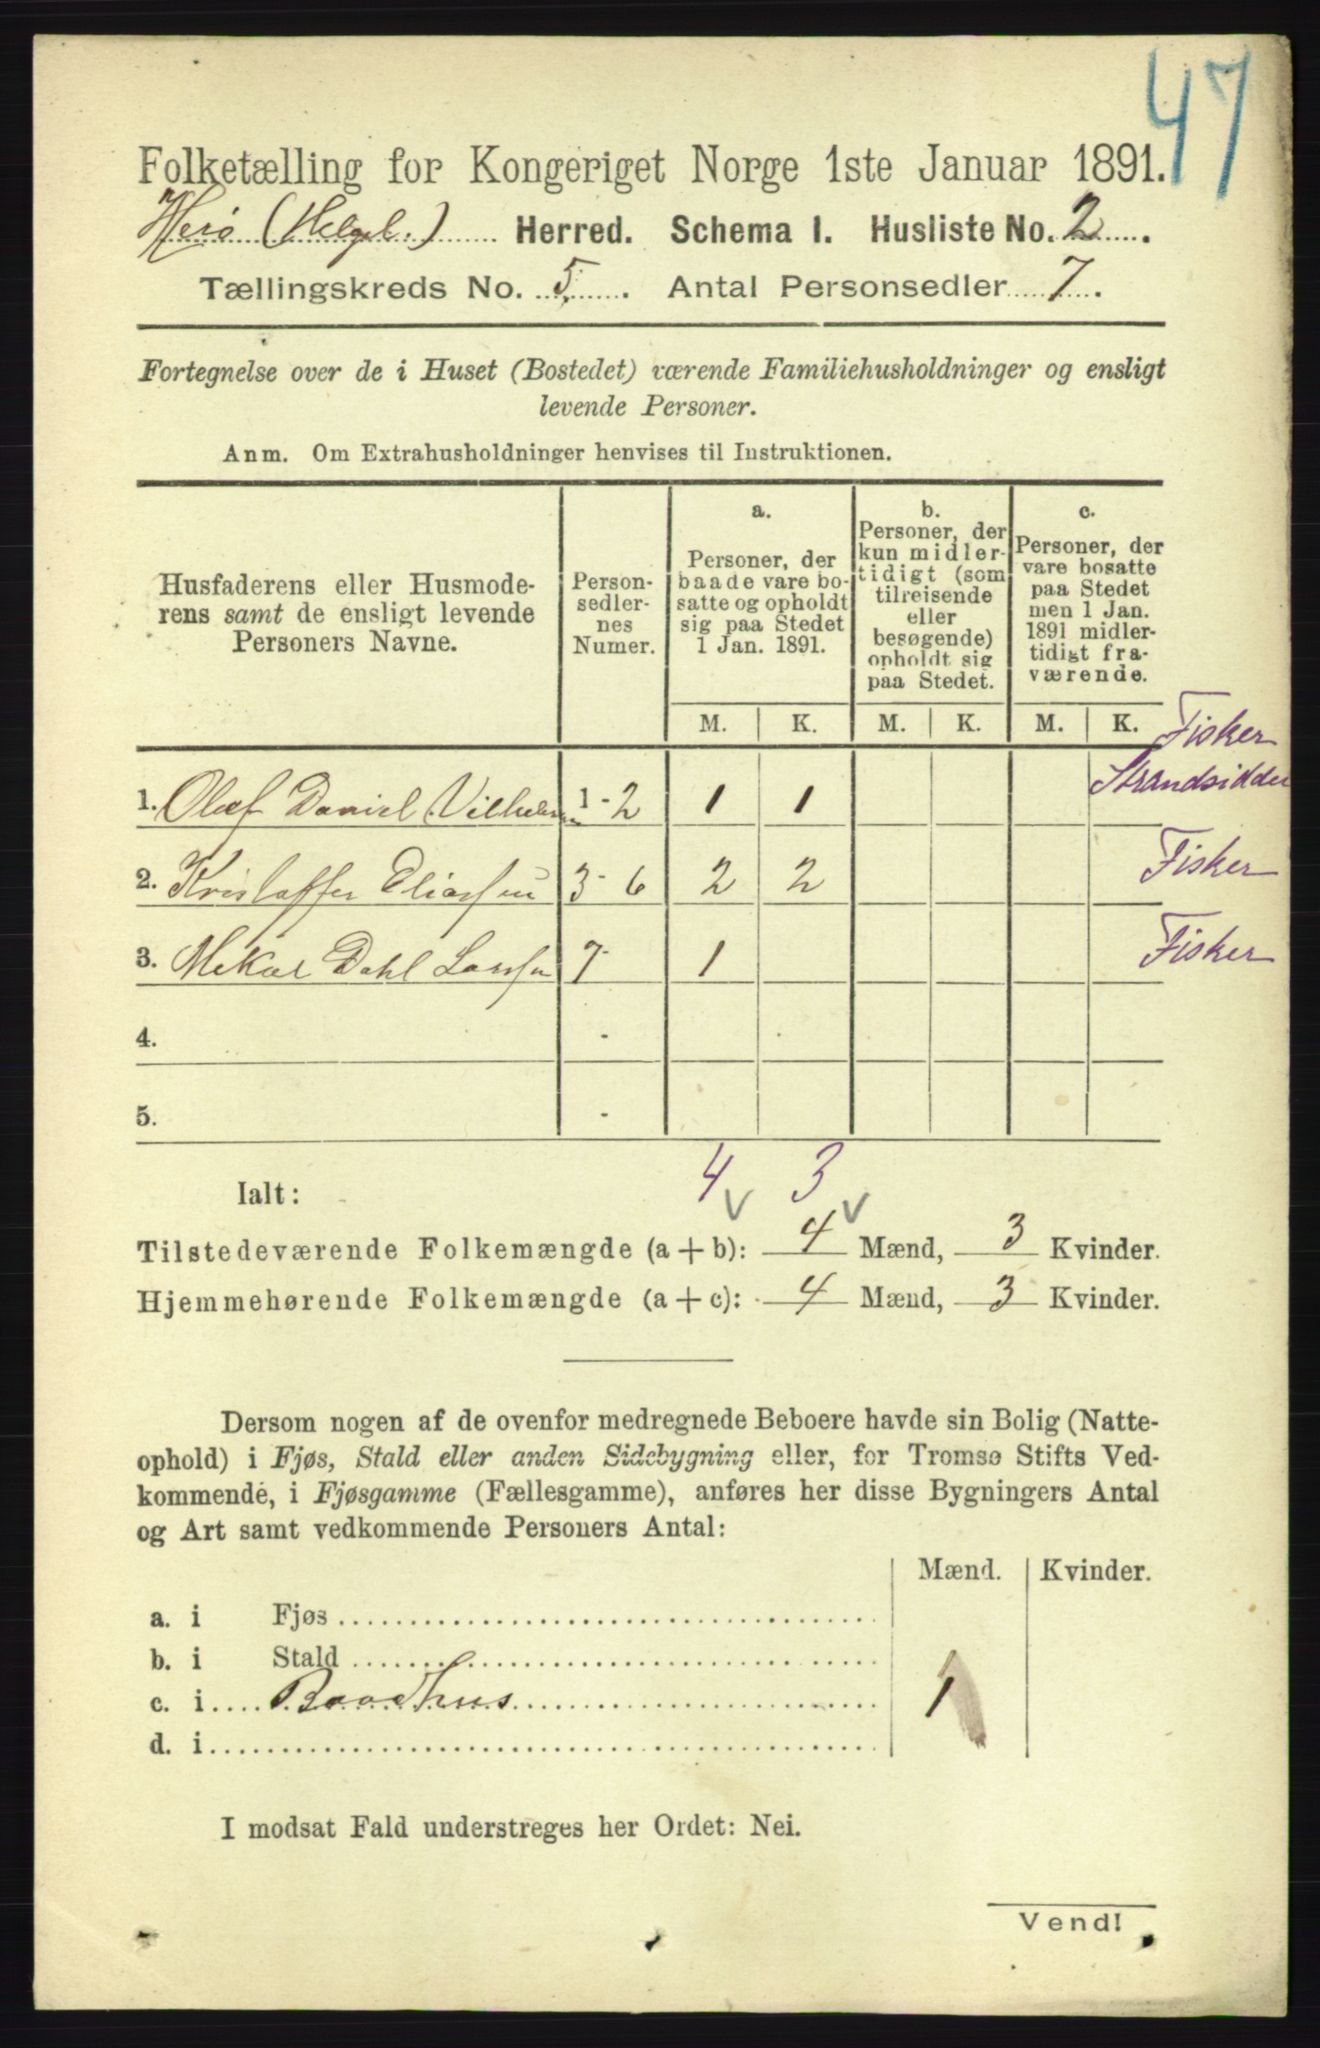 47
Folketælling for Kongeriget Norge 1ste Januar 1891.
Herø (Helgel.) Herred. Schema I. Husliste No. 2.
Tællingskreds No. 5. Antal Personsedler 7.
Fortegnelse over de i Huset (Bostedet) værende Familiehusholdninger og ensligt
levende Personer.
Anm. Om Extrahusholdninger henvises til Instruktionen.
Husfaderens eller Husmode-
rens samt de ensligt levende
Personers Navne.
Person-
sedler-
nes
Numer.
a.
Personer, der
baade vare bo-
satte og opholdt
sig paa Stedet
1 Jan. 1891.
b.
Personer, der
kun midler-
tidigt (som
tilreisende
eller
besøgende)
opholdt sig
paa Stedet.
c.
Personer, der
vare bosatte
paa Stedet
men 1 Jan.
1891 midler-
tidigt fra-
værende.
M. K. M. K. M. K.
Fisker
Strandsidder
1. Olaf Daniel Vilhelm 1 - 2 1 1
2. Kristoffer Eliassen 3 - 6 2 2 Fisker
3. Mekal Dahl Larssen 7 - 1 Fisker
4. -
5. -
4 3
Ialt:
Tilstedeværende Folkemængde (a + b): 4 Mænd, 3 Kvinder.
Hjemmehørende Folkemængde (a + c): 4 Mænd, 3 Kvinder.
Dersom nogen af de ovenfor medregnede Beboere havde sin Bolig (Natte-
ophold) i Fjøs, Stald eller anden Sidebygning eller, for Tromsø Stifts Ved-
kommende, i Fjøsgamme (Fællesgamme), anføres her disse Bygningers Antal
og Art samt vedkommende Personers Antal:
Mænd. Kvinder.
a. i Fjøs
b. i Stald
c. i Baadhus 1
d. i
I modsat Fald understreges her Ordet: Nei.
Vend!